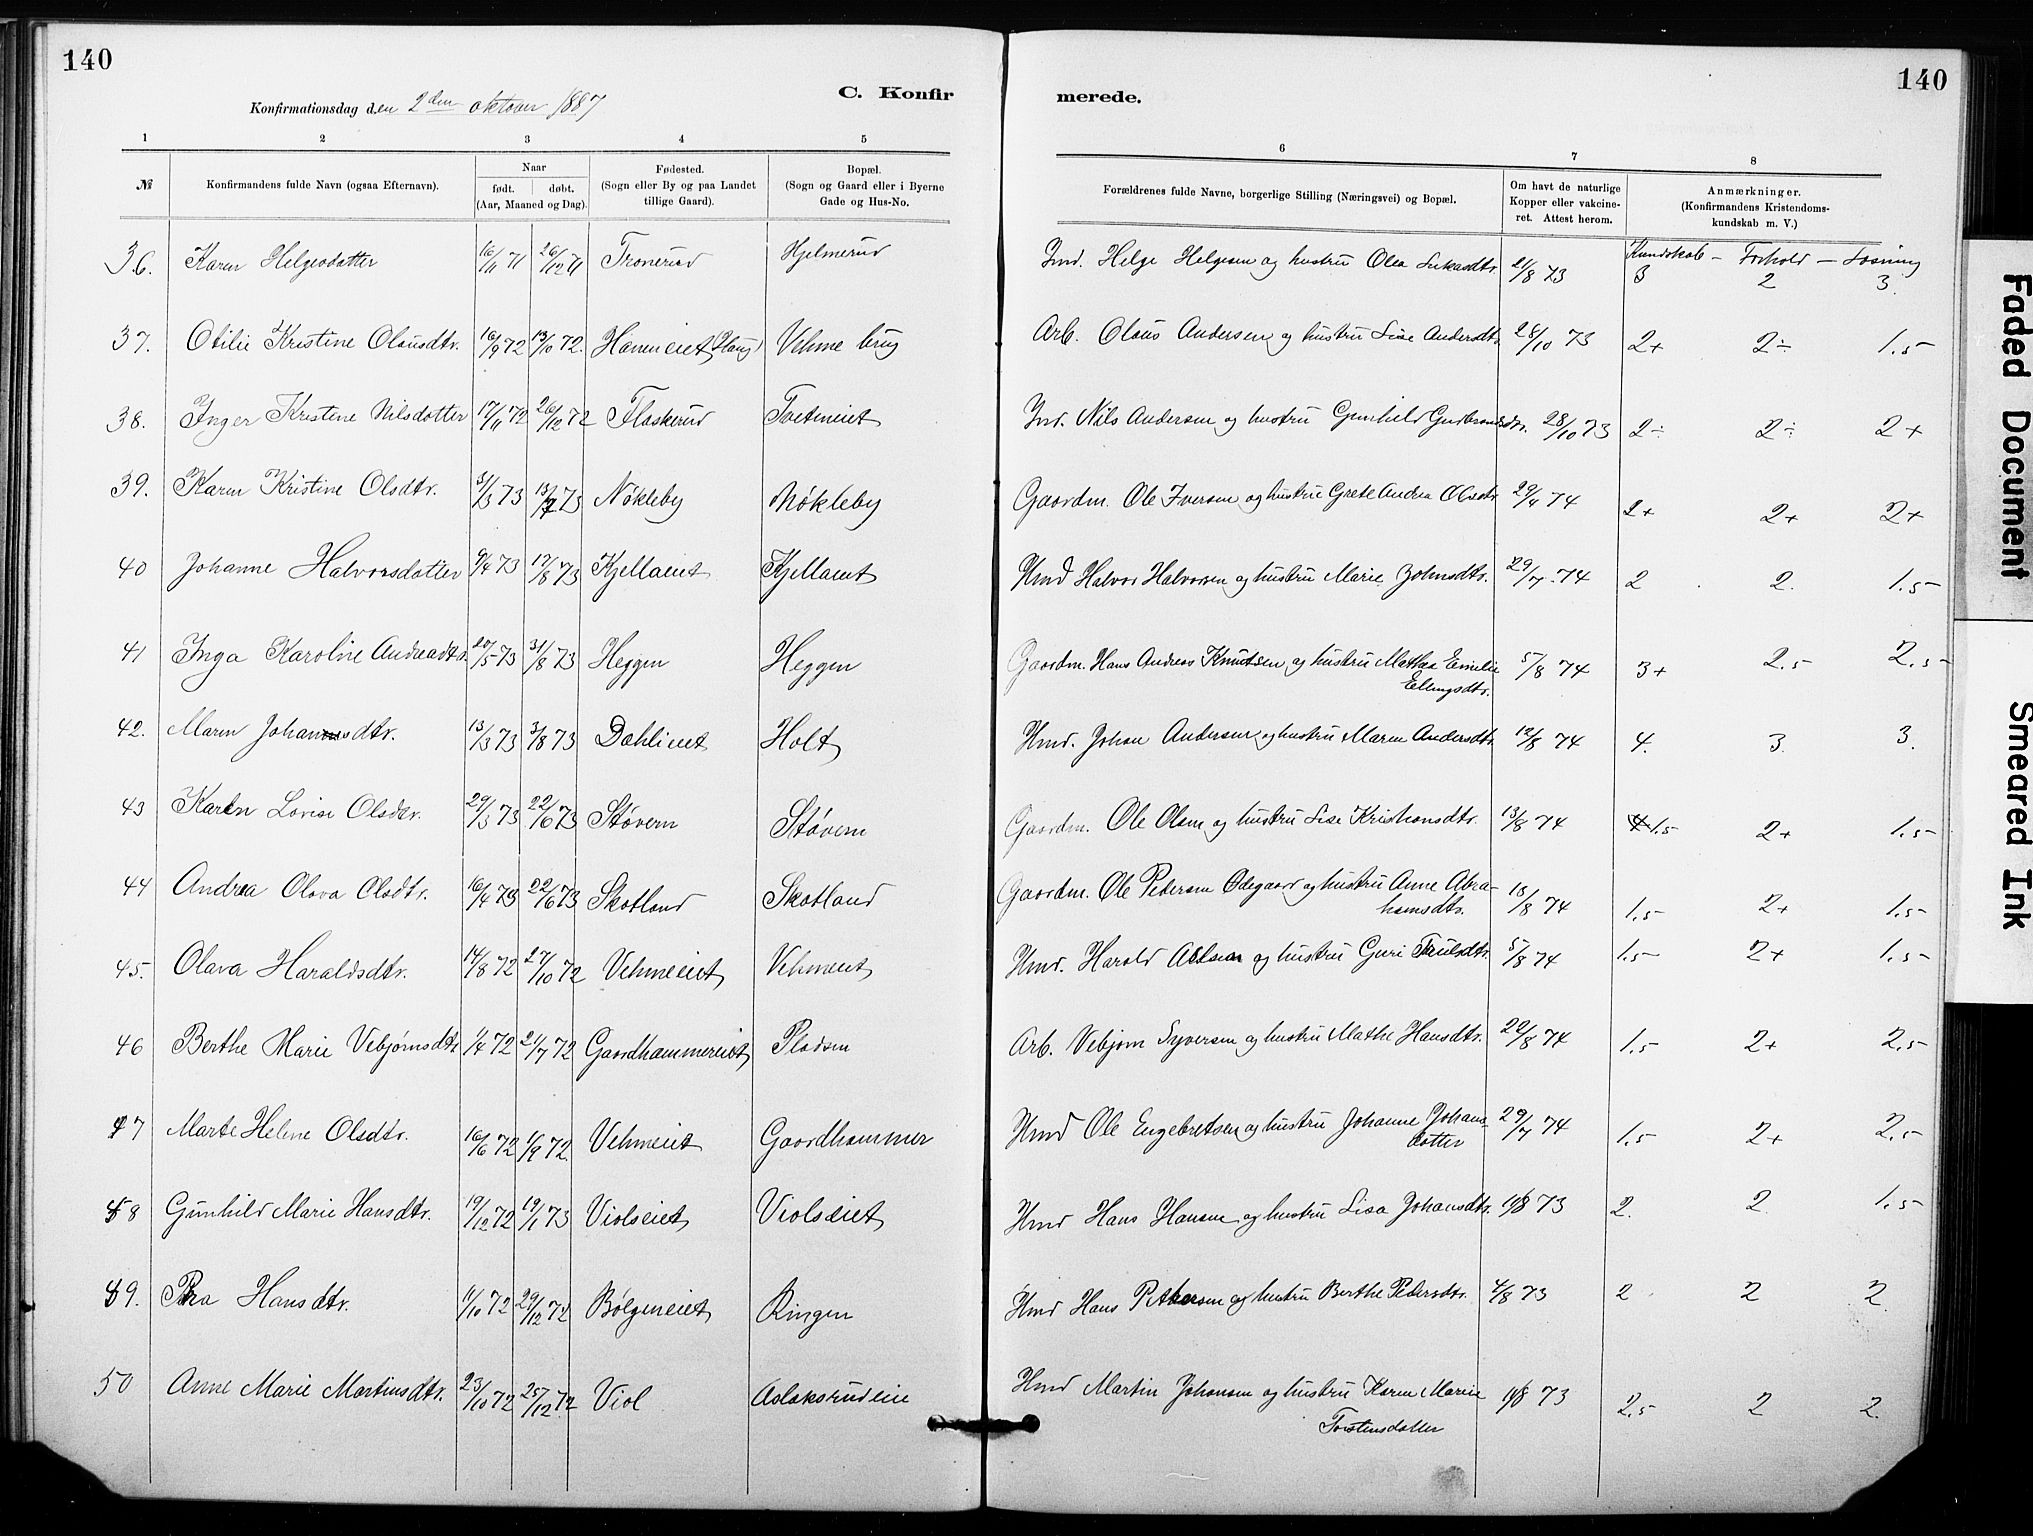 140
140
C. Konfir
merede.
Konfirmationsdag den 2den oktober 1887
1 2 3 4 5 6 7 8
№
Konfirmandens fulde Navn (ogsaa Efternavn).
Naar
født. døbt.
(Aar, Maaned og Dag).
Fødested.
(Sogn eller By og paa Landet
tillige Gaard).
Bopæl.
(Sogn og Gaard eller i Byerne
Gade og Hus-No.
Forældrenes fulde Navne, borgerlige Stilling (Næringsvei) og Bopæl.
Om havt de naturlige
Kopper eller vakcine-
ret. Attest herom.
Anmærkninger.
(Konfirmandens Kristendoms-
kundskab m. V.)
Kundskab - Forhold - Læsning
36. Karen Helgesdatter 16/11 71 26/12 71 Tronerud Hjelmerud Ind. Helge Helgesen og hustru Olea Lukasdtr. 21/8 73 3 2 3.
37. Otilie Kristine Olausdtr. 16/9 72 13/10 72. Hammeiet (Haug) Vehme brug Arb. Olaus Andersen og hustru Lise Andersdtr. 28/10 73 2+ 2÷ 1.5
38. Inger Kristine Nilsdatter 17/11 72 26/12 72 Flaskerud Tvetmeiet Ind. Nils Andersen og hustru Gunhild Gudbrandsdtr. 28/10 73 2÷ 2÷ 2+
39. Karen Kristine Olsdtr. 3/3 73 13/7 73 Nøkleby Nøkleby Gaardm. Ole Iversen og hustru Grete Andrea Olsdtr 29/4 74 2+ 2+ 2+
40 Johanne Halvorsdatter 9/4 73 17/8 73 Kjellaeiet Kjellaeiet Hmd Halvor Halvorsen og hustru Marie Johnsdtr. 29/7 74 2 2. 1.5
41 Inga Karoline Andreadtr. 20/5 73 31/8 73 Heggen Heggen Gaardm. Hans Andreas Knutsen og hustru Mathea Emilie
Ellingsdtr. 5/8 74 3+ 2.5 2.5
42. Maren Johannsdtr. 13/3 73 3/8 73 Dahlieiet Holt Hmd. Johan Andersen og hustru Maren Andersdtr. 12/8 74 4. 3. 3.
43 Karen Lovise Olsdtr. 29/3 73 22/6 73 Støvern Støvern Gaardm. Ole Olsen og hustru Lise Kristiansdtr. 13/8 74 1.5 2+ 1.5
44 Andrea Olava Olsdtr. 16/4 73 22/6 73 Skotland Skotland Gaardm. Ole Pedersen Ødegaard og hustru Anne Abra-
hamsdtr. 13/8 74 1.5 2+ 1.5
45. Olava Haraldsdtr. 14/8 72 27/10 72 Vehmeeiet Vehmeiet Hmd. Harald Aslesen og hustru Guri Trulsdtr. 5/8 74 1.5 2+ 1.5
46 Berthe Marie Vebjørnsdtr 1/4 72 21/7 72 Gaardhammereiet Pladsen Arb. Vebjørn Syversen og hustru Mathe Hansdtr. 22/8 74 1.5 2+ 2.5
47 Marte Helene Olsdtr. 16/6 72 1/9 72. Vehmeiet Gaardhammer Hmd Ole Engebretsen og hustru Johanne Johans
datter 29/7 74 1.5 2+ 2.5
48 Gunhild Marie Hansdtr. 19/12 72 19/1 73 Violseiet Violseiet Hmd Hans Hansen og hustru Lisa Johansdtr. 11/8 73 2. 2. 1.5
49. Petra Hansdtr. 11/10 72 29/12 72 Bølgeneiet Ringen Hmd Hans Pettersen og hustru Berthe Pedersdtr. 4/8 73 2 2 2.
50 Anne Marie Martinsdtr. 23/10 72 25/12 72 Viol Aslaksrudeie Hmd Martin Johansen og hustru Karen Marie
Torstensdatter 11/8 73 2.5 2 2.
Faded Document
Smeared Ink